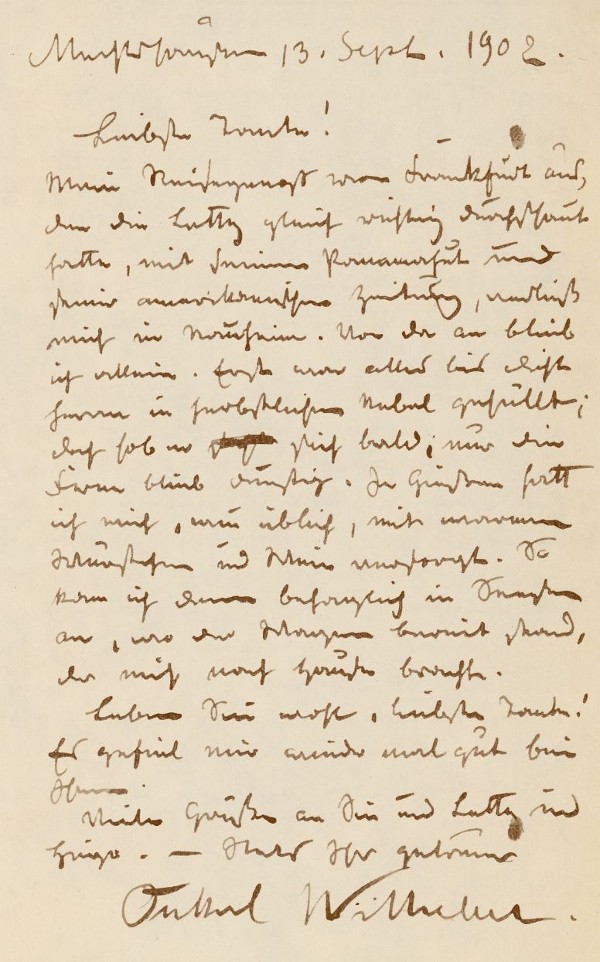 Mechtshausen 13. Sept. 1902.
Liebste Tante!
Mein Reisegenoß von Frankfurt aus,
den die Letty gleich richtig durchschaut
hatte, mit seinem Panamahut und
seiner amerikanischen Zeitung, verließ
mich in Nauheim. Von da an blieb
ich allein. Erst war alles bis dicht
heran in herbstlichen Nebel gehüllt;
doch hob er sich bald; nur die
Ferne blieb dunstig. In Gießen hatt
ich mich, wie üblich, mit warmen
Würstchen und Wein versorgt. So
kam ich denn behaglich in Seesen
an, wo der Wagen bereit stand,
der mich nach Hause brachte.
Leben Sie wohl, liebste Tante!
Es gefiel mir wieder mal gut bei
Ihnen.
Viele Grüße an Sie und Letty und
Hugo. — Stets Ihr getreuer
Onkel Wilhelm.